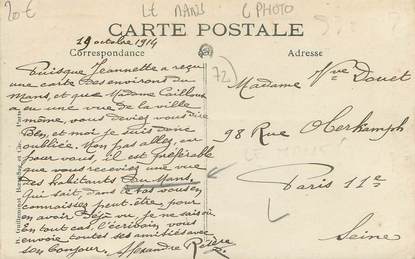 20€
LE MANS
C PHOTO
CARTE POSTALE
19 octobre 1914
Correspondance
Adresse
72
Puisque Jeannette a reçu
une carte des environs du
Mans, et que Madame Cailloux
a eu une vue de la ville
même, vous deviez vous dire
Ben, et moi je suis donc
oubliée. Mon pas allez, car
pour vous, il est préférable
que vous receviez une vue
des habitants Du Mans.
qui sait, dans le tas vous en
connaissez peut-être, pour
en avoir Déjà vu, je ne sais
en tout cas, l'écrivain vous
envoie toutes ses amitiés avec
son bonjour. Alexandre
Madame Vve Douet
98 Rue Oberkampf
Paris 11e
Seine